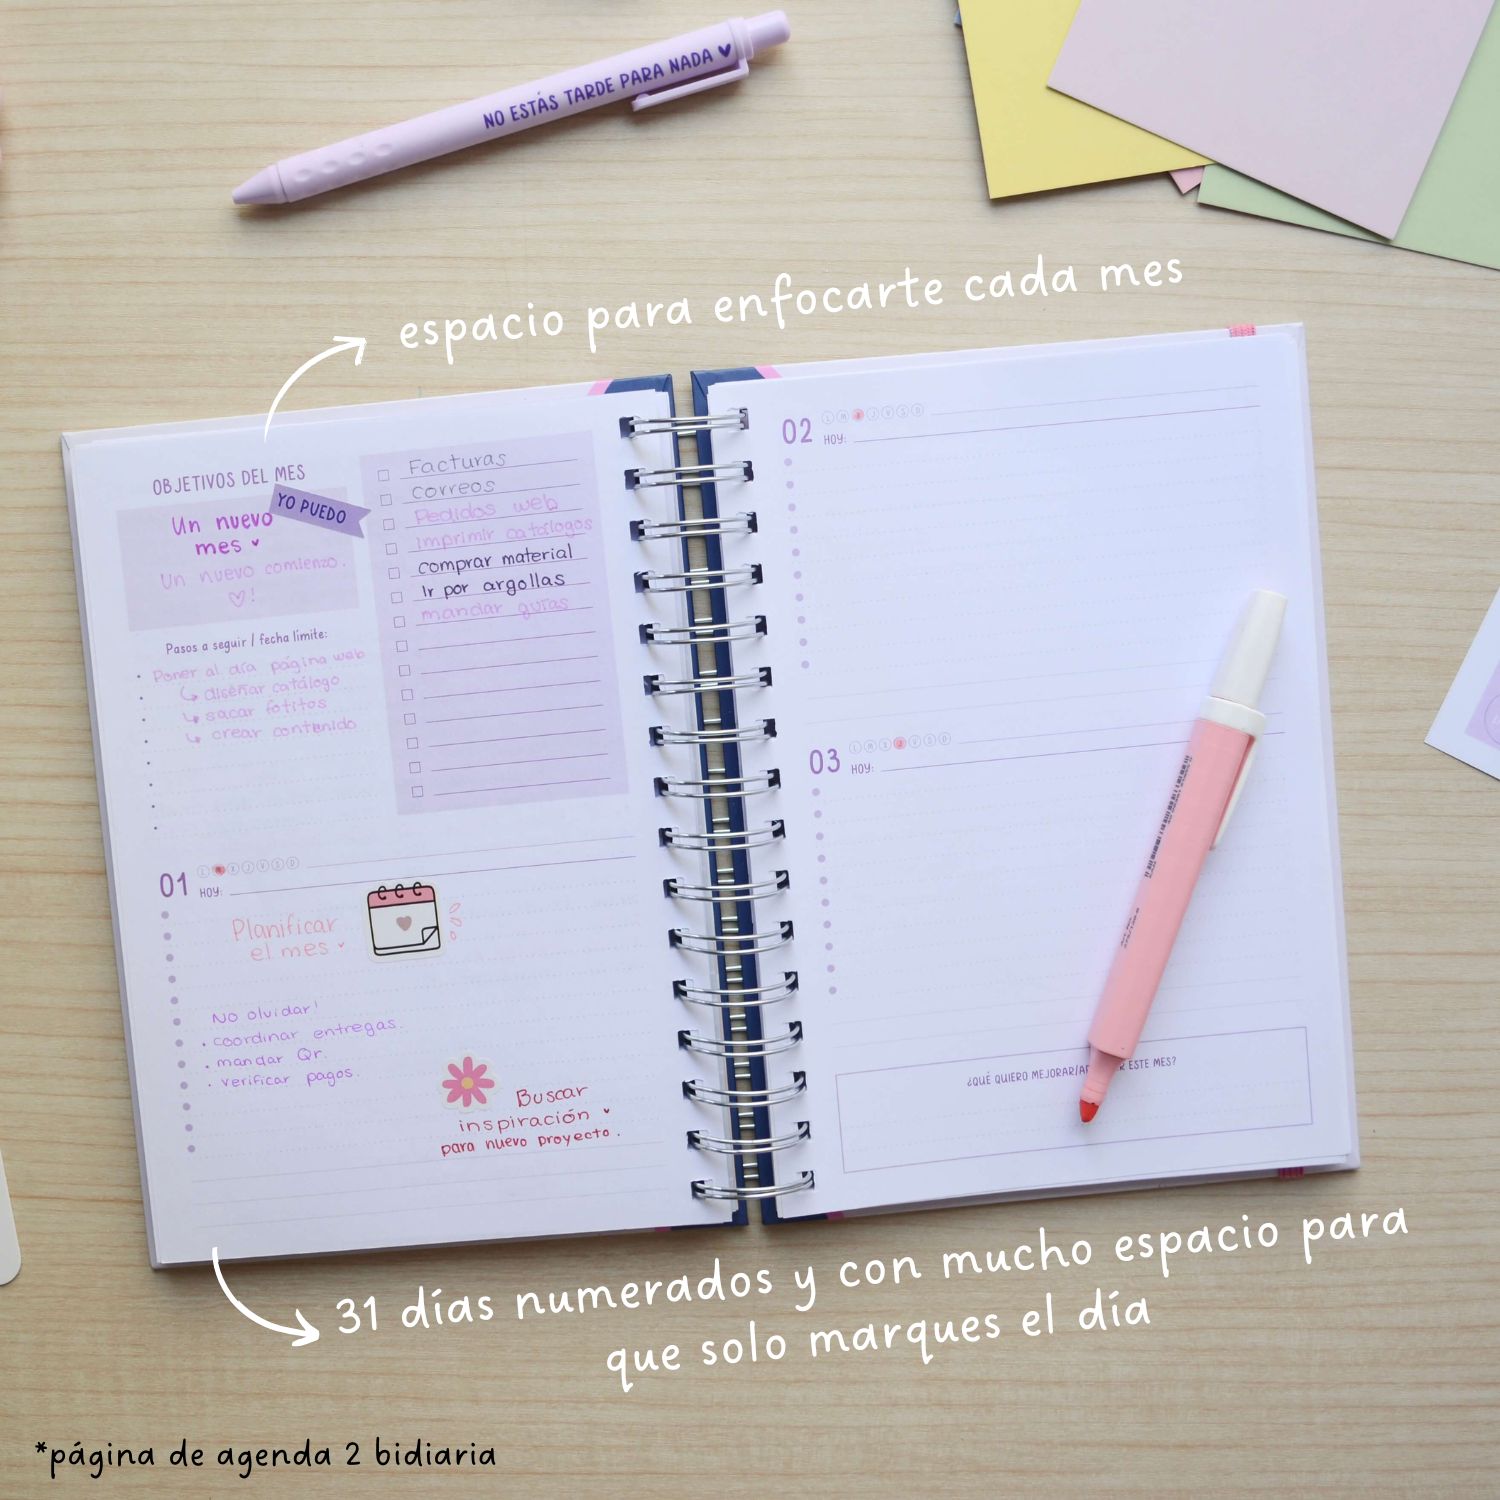 NO ESTÁS TARDE PARA NADA
espacio para enfocarte cada mes
OBJETIVOS DEL MES
YO PUEDO
Un nuevo
mes
Un nuevo comienzo.
!
Pasos a seguir / fecha límite:
Poner al día página web
diseñar catálogo
sacar fotitos
crear contenido
Facturas
correos
Pedidos web
imprimir catálogos
comprar material
Ir por argollas
mandar guías
01
L M X J V S D
HOY:
Planificar
el mes
No olvidar!
• coordinar entregas.
• mandar Qr.
• verificar pagos.
Buscar
inspiración
para nuevo proyecto.
02
L M X J V S D
HOY:
03
L M X J V S D
HOY:
¿QUÉ QUIERO MEJORAR/ ESTE MES?
31 días numerados y con mucho espacio para
que solo marques el día
*página de agenda 2 bidiaria